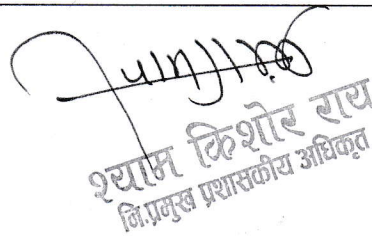 श्याम किशोर राय
नि.प्रमुख प्रशासकीय अधिकृत